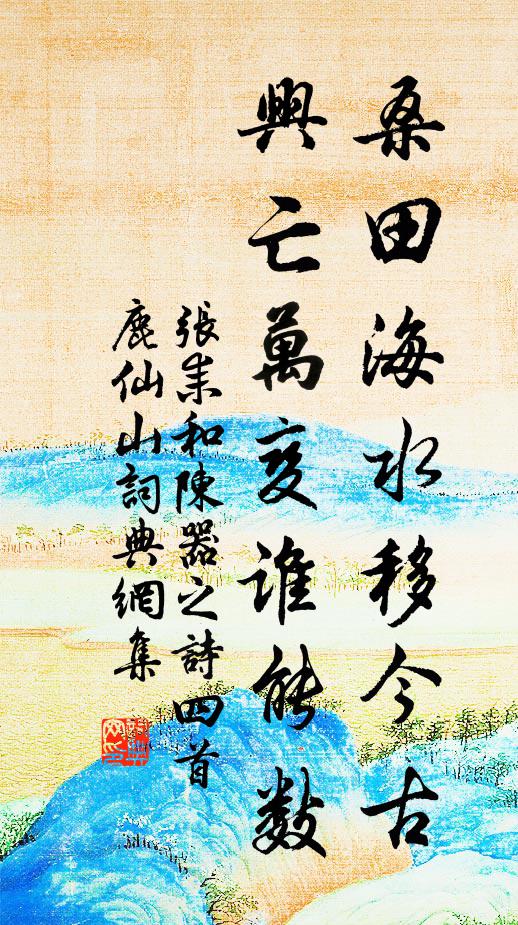 桑田海水移今古
興亡萬変誰能數
張耒和陳器之詩四首
鹿仙山詞典網集